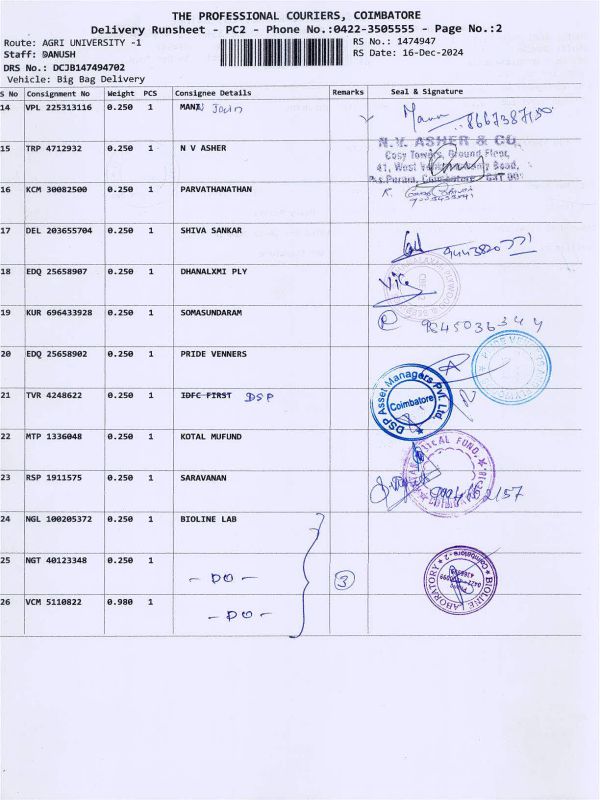 THE PROFESSIONAL COURIERS, COIMBATORE
Delivery Runsheet - PC2 - Phone No.:0422-3505555 - Page No.:2
Route: AGRI UNIVERSITY -1 RS No.: 1474947
Staff: DANUSH RS Date: 16-Dec-2024
DRS No.: DCJB147494702
Vehicle: Big Bag Delivery
S No Consignment No Weight PCS Consignee Details Remarks Seal & Signature
14 VPL 225313116 0.250 1 MANI
15 TRP 4712932 0.250 1 N V ASHER
N.V. ASHER & CO.
Cosy Towers, Ground Floor,
41, West
16 KCM 30082500 0.250 1 PARVATHANATHAN
17 DEL 203655704 0.250 1 SHIVA SANKAR
18 EDQ 25658907 0.250 1 DHANALXMI PLY
19 KUR 696433928 0.250 1 SOMASUNDARAM
9245036344
20 EDQ 25658902 0.250 1 PRIDE VENNERS
21 TVR 4248622 0.250 1 IDFC FIRST DSP
DSP Asset Managers Pvt. Ltd.
Coimbatore
22 MTP 1336048 0.250 1 KOTAL MUFUND
23 RSP 1911575 0.250 1 SARAVANAN
24 NGL 100205372 0.250 1 BIOLINE LAB
25 NGT 40123348 0.250 1 - DO - 3
BIOLINE LABORATORY
Coimbatore-2
26 VCM 5110822 0.980 1 - DO -